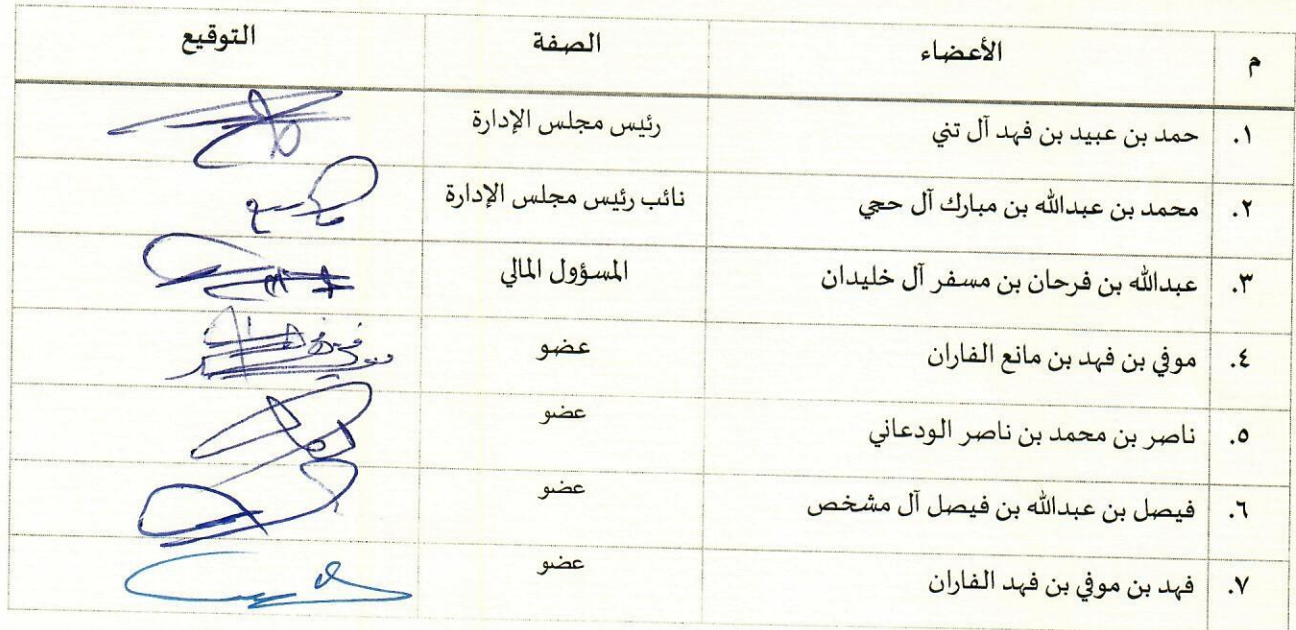 م الأعضاء الصفة التوقيع
١. حمد بن عبيد بن فهد آل تني رئيس مجلس الإدارة
٢. محمد بن عبدالله بن مبارك آل حجي نائب رئيس مجلس الإدارة
٣. عبدالله بن فرحان بن مسفر آل خليدان المسؤول المالي
٤. موفي بن فهد بن مانع الفاران عضو
٥. ناصر بن محمد بن ناصر الودعاني عضو
٦. فيصل بن عبدالله بن فيصل آل مشخص عضو
٧. فهد بن موفي بن فهد الفاران عضو